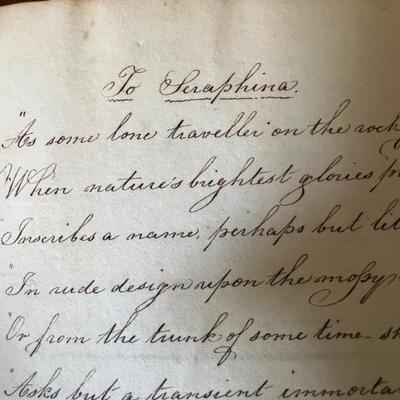 To Seraphina.
"As some lone traveller on the rock
"When nature's brightest glories
"Inscribes a name, perhaps but lit
"In rude design upon the mossy
"Or from the trunk of some time-sh
"Asks but a transient immorta